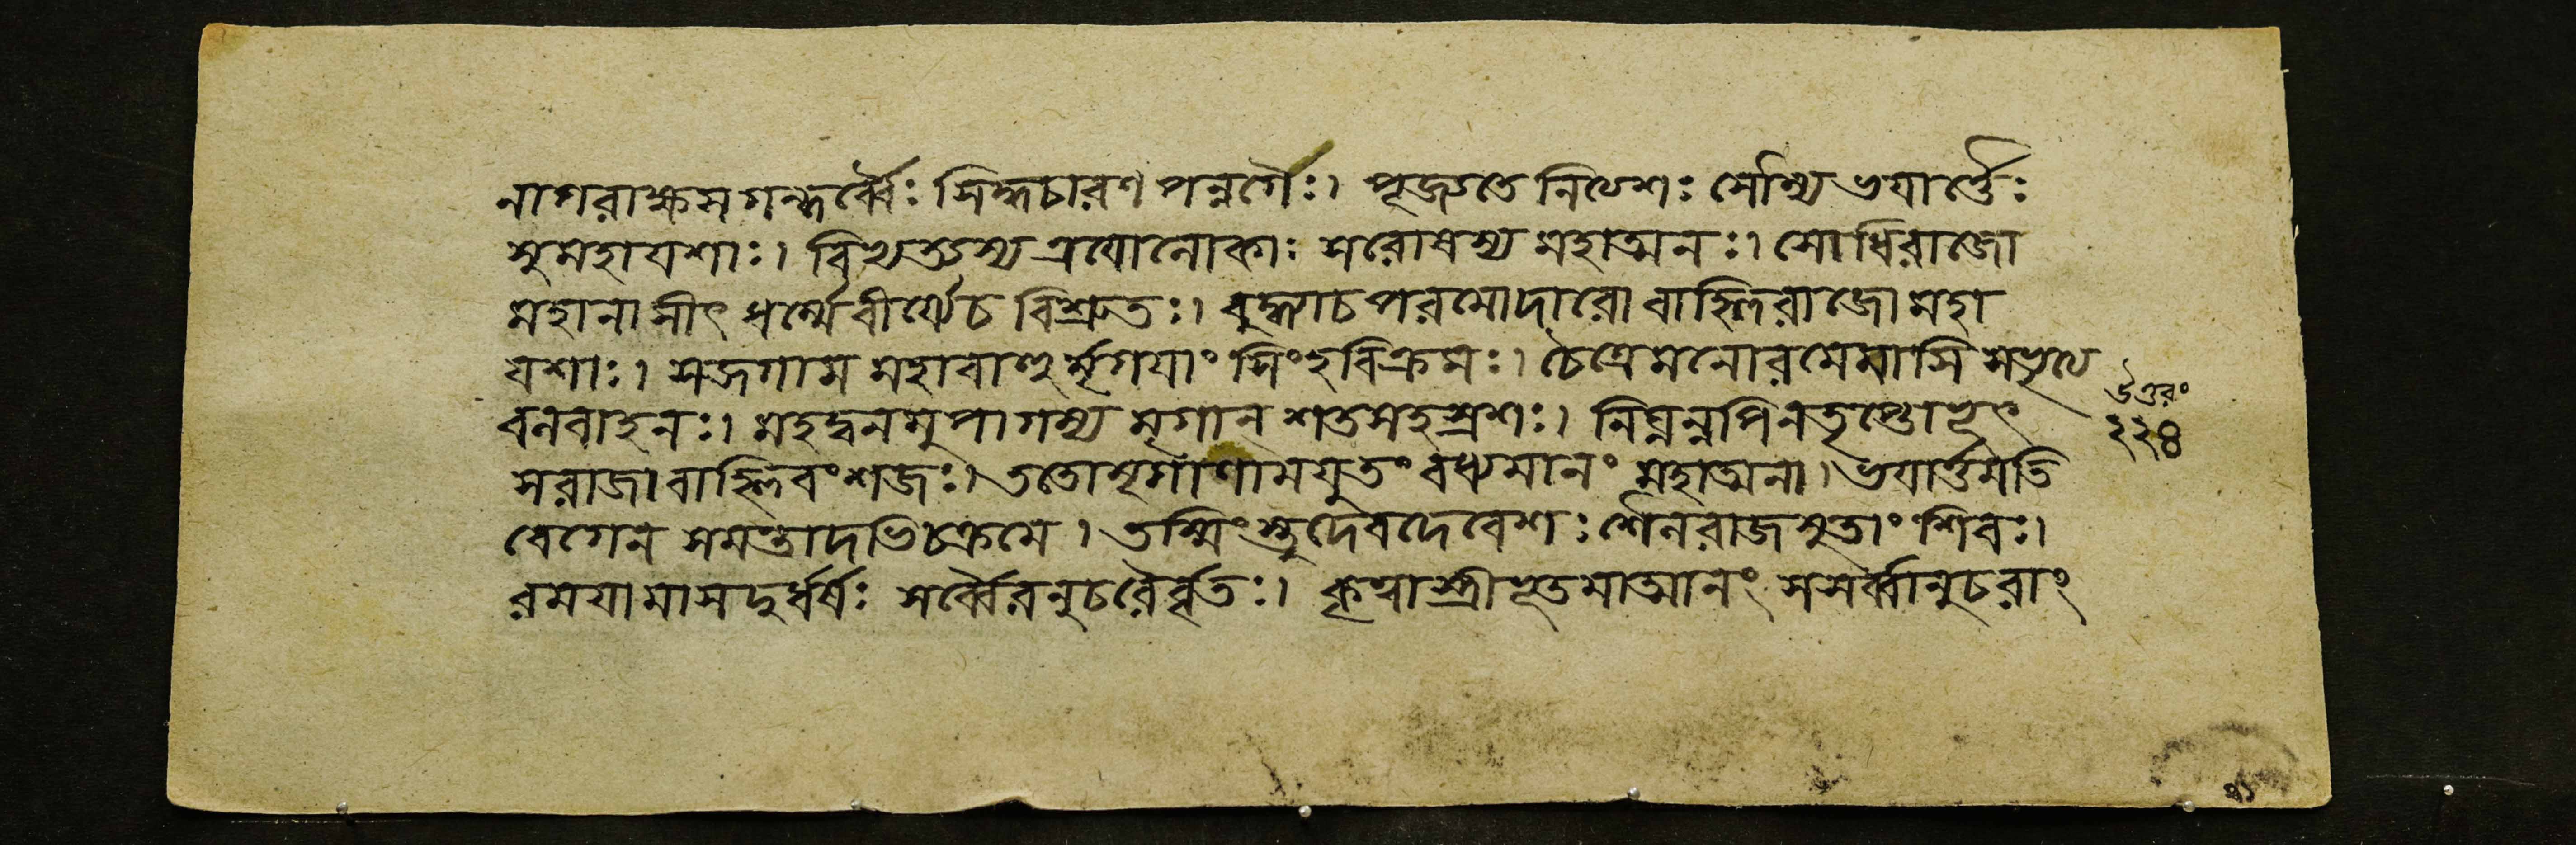 নাগরাক্ষসগন্ধর্ব্বৈঃ সিদ্ধচারণপন্নগৈঃ। পূজ্যতে নিত্যশঃ সৌম্য ভযার্ত্তৈঃ
সুমহাযশাঃ। বিভ্যত্যস্য ত্রযোলোকাঃ সরোষস্য মহাত্মনঃ। সোধিরাজো
মহানাসীৎ ধর্ম্মেবীর্য্যেচ বিশ্রুতঃ। বুদ্ধ্যাচপরমোদারো বাহ্লিরাজো মহা
যশাঃ। সজগাম মহাবাহুর্মৃগযাং সিংহবিক্রমঃ। চৈত্রেমনোরমেমাসি সভৃত্য
বলবাহনঃ। মহদ্বনমুপাগম্য মৃগান শতসহস্রশঃ। নিঘ্নন্নপিনতৃপ্তোভূৎ
সরাজা বাহ্লিবংশজঃ। ততোমৃগাণামযুতং বধ্যমানং মহাত্মনা। ভযার্ত্তমতি
বেগেন সমন্তাদভিচক্রমে। তস্মিংস্তুদেবদেবেশঃ শৈলরাজসুতাং শিবঃ।
রমযামাসদুর্ধর্ষঃ সর্ব্বৈরনুচরৈর্বৃতঃ। কৃত্বাস্ত্রীভূতমাত্মানং সসর্ব্বানুচরাং
উত্তরং
२२४